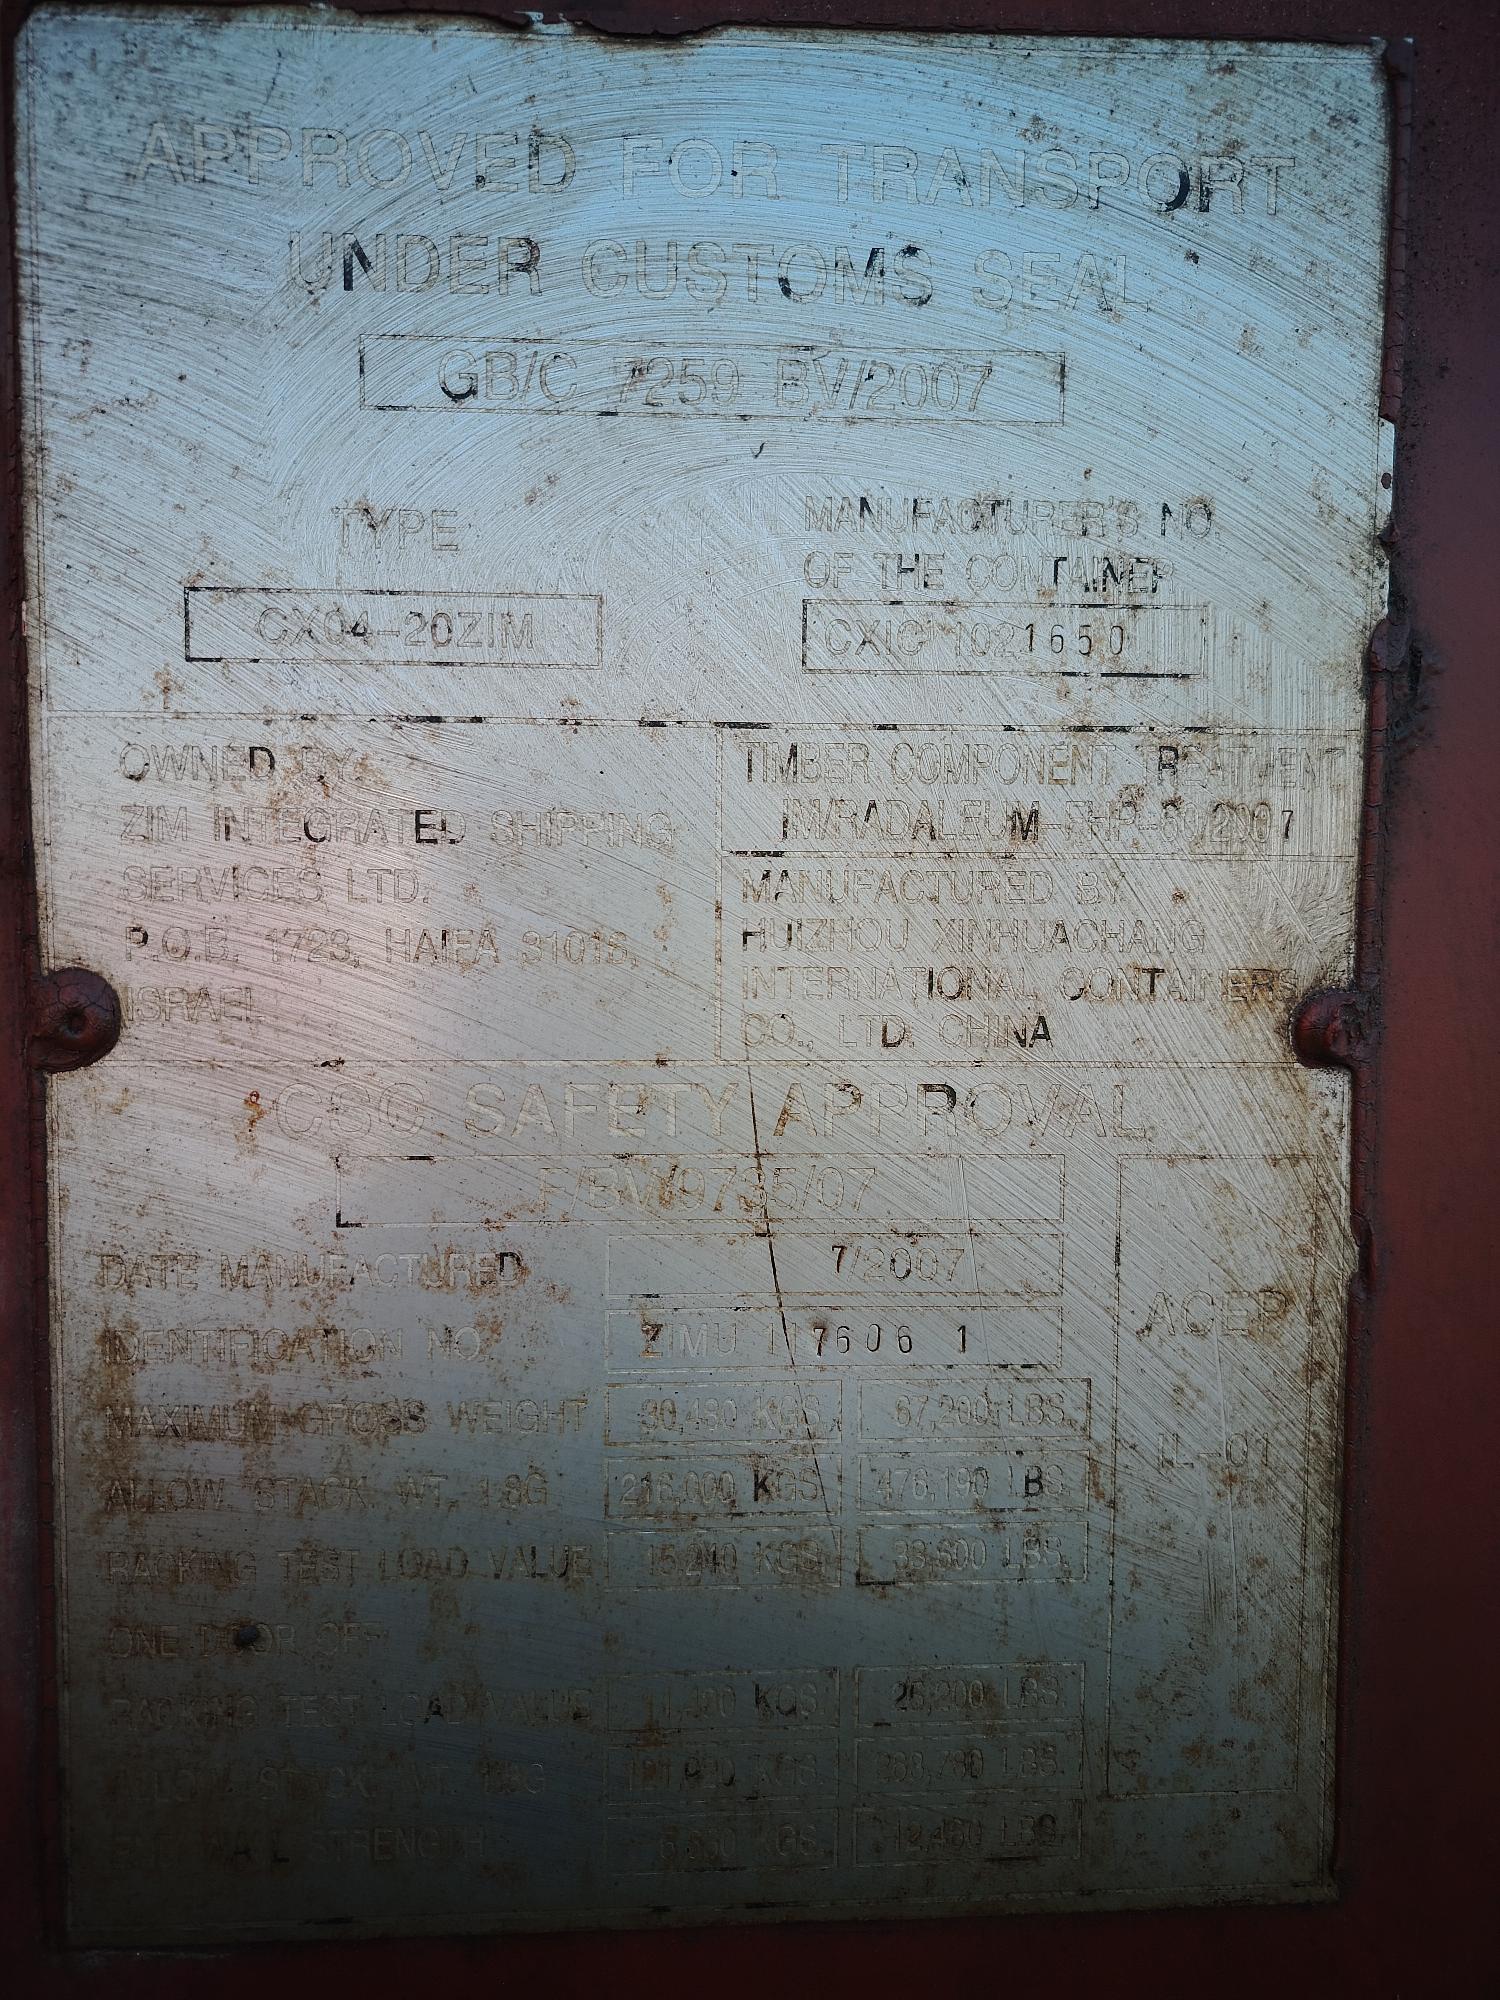 APPROVED FOR TRANSPORT
UNDER CUSTOMS SEAL
GB/C 7259 BV/2007
TYPE
CX04-20ZIM
MANUFACTURER'S NO.
OF THE CONTAINER
CXIC 1021650
OWNED BY:
ZIM INTEGRATED SHIPPING
SERVICES LTD.
P.O.B. 1723, HAIFA 31016,
ISRAEL
TIMBER COMPONENT TREATMENT
IM/RADALEUM-FHP-60/2007
MANUFACTURED BY
HUIZHOU XINHUACHANG
INTERNATIONAL CONTAINERS
CO., LTD. CHINA
CSC SAFETY APPROVAL
F/BV/9735/07
DATE MANUFACTURED 7/2007
IDENTIFICATION NO. ZIMU 117606 1
MAXIMUM GROSS WEIGHT 30,480 KGS. 67,200 LBS.
ALLOW. STACK. WT. 1.8G 216,000 KGS. 476,190 LBS.
RACKING TEST LOAD VALUE 15,240 KGS. 33,600 LBS.
ONE DOOR OFF
RACKING TEST LOAD VALUE KGS. LBS.
ALLOW. STACK. WT. 1.8G KGS. LBS.
WALL STRENGTH KGS. LBS.
ACEP
IL-01